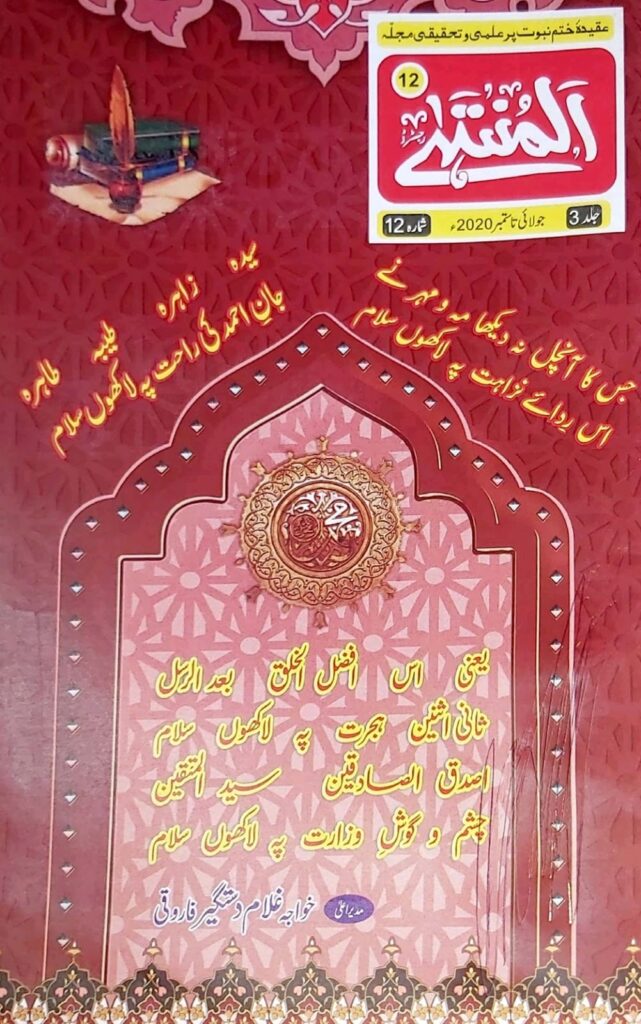 عقیدۂ ختم نبوت پر علمی و تحقیقی مجلّہ
12
اَلمُنتَہٰی
جلد 3
جولائی تا ستمبر 2020ء
شمارہ 12
جس کا آنچل نہ دیکھا مہ و مہر نے
اس ردائے نزاہت پہ لاکھوں سلام
سیدہ زاہرہ طیبہ طاہرہ
جانِ احمد کی راحت پہ لاکھوں سلام
محمد
یعنی اس افضل الخلق بعد الرسل
ثانی اثنین ہجرت پہ لاکھوں سلام
اصدق الصادقین سید المتقین
چشم و گوشِ وزارت پہ لاکھوں سلام
مدیر اعلیٰ
خواجہ غلام دستگیر فاروقی